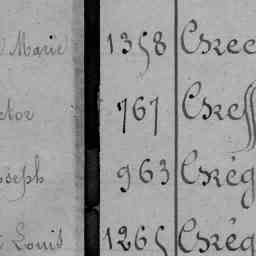 Marie 1358 Cree
ctor 767 Cress
oseph 963 Crég
Louis 1265 Crég